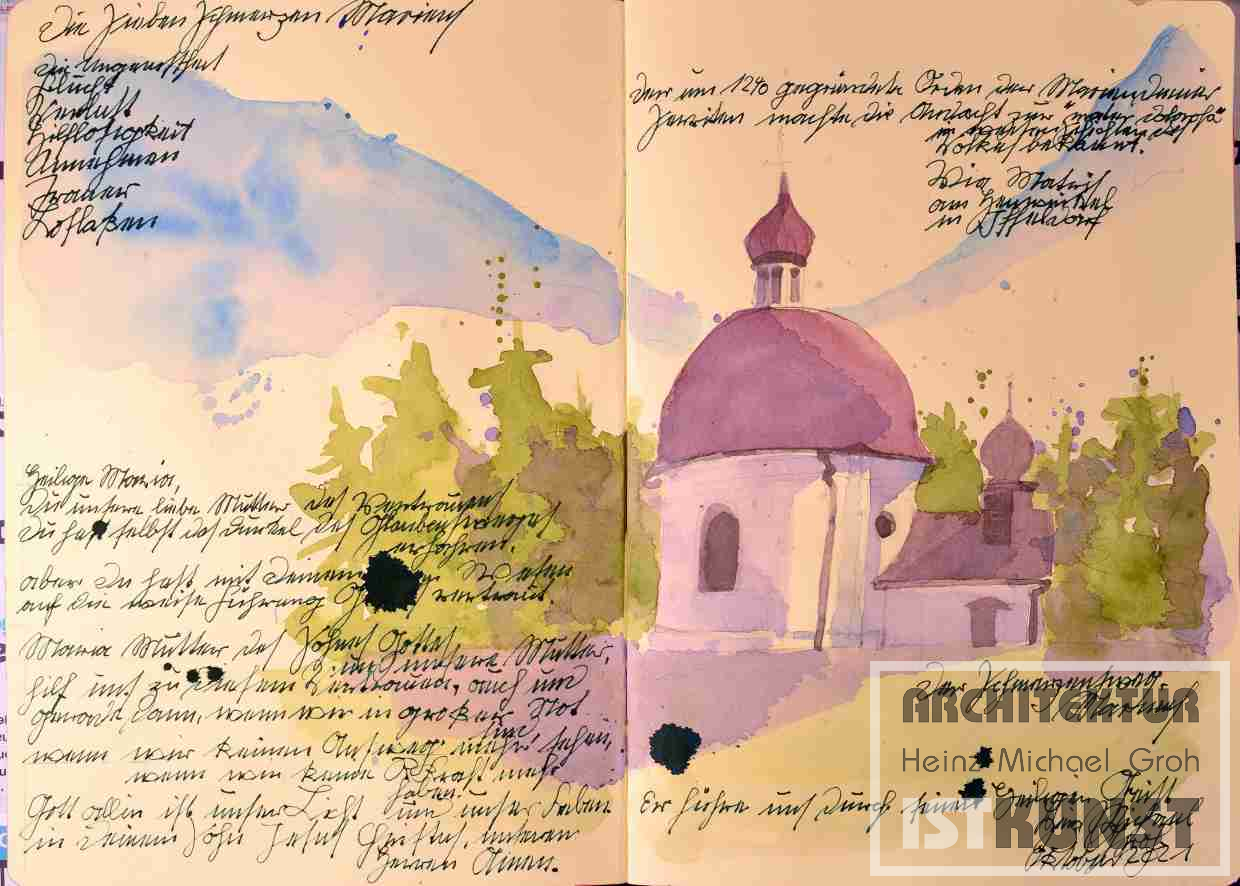 Die sieben Schmerzen Mariens
Die Ungewißheit
Flucht
Verlust
Hilflosigkeit
Annehmen
Trauer
Loslaßen
Heilige Maria,
Du unsere liebe Mutter des Vertrauens
Du hast selbst das Dunkel des Glaubensweges
erfahren.
aber Du hast mit Deinem Wesen
auf die weise Führung Gottes vertraut.
Maria Mutter des Sohnes Gottes
und unsere Mutter,
hilf uns zu diesem Vertrauen, auch und
gerade dann, wenn wir in großer Not
sind
wenn wir keinen Ausweg mehr sehen,
wenn wir keine Kraft mehr
haben.
Gott allein ist unser Licht und unser Leben
in Deinem Sohn Jesus Christus, unseren
Herren Amen.
Der um 1240 gegründete Orden der Mariendiener
Serviten machte die Andacht zur "mater dolorosa"
in weiten Schichten des
Volkes bekannt.
Via Matris
am Heuwinkel
in Iffeldorf
Der Schmerzensweg
Mariens
Er führe uns durch seinen Heiligen Geist
Heinz Michael
Groh
Oktober 2021
ARCHITEKTUR
Heinz Michael Groh
IST KUNST